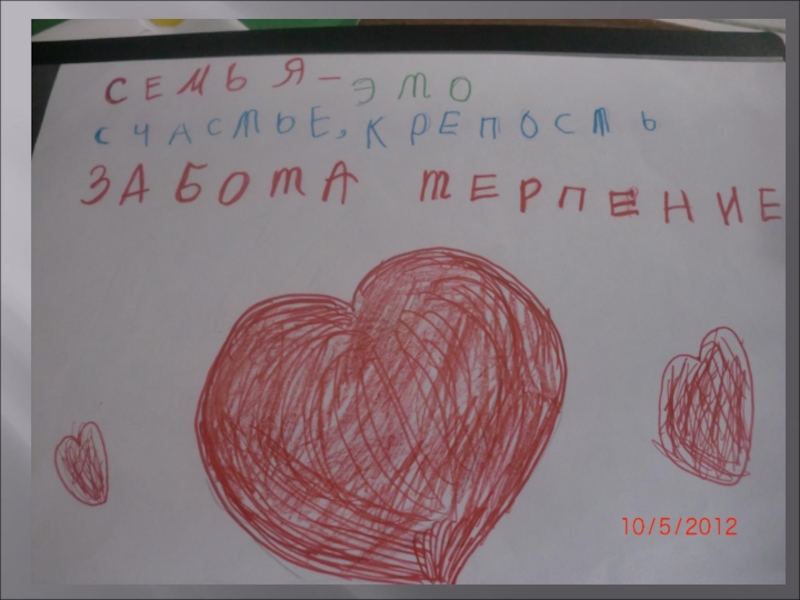 СЕМЬЯ-ЭТО
СЧАСТЬЕ, КРЕПОСТЬ
ЗАБОТА ТЕРПЕНИЕ
10/5/2012